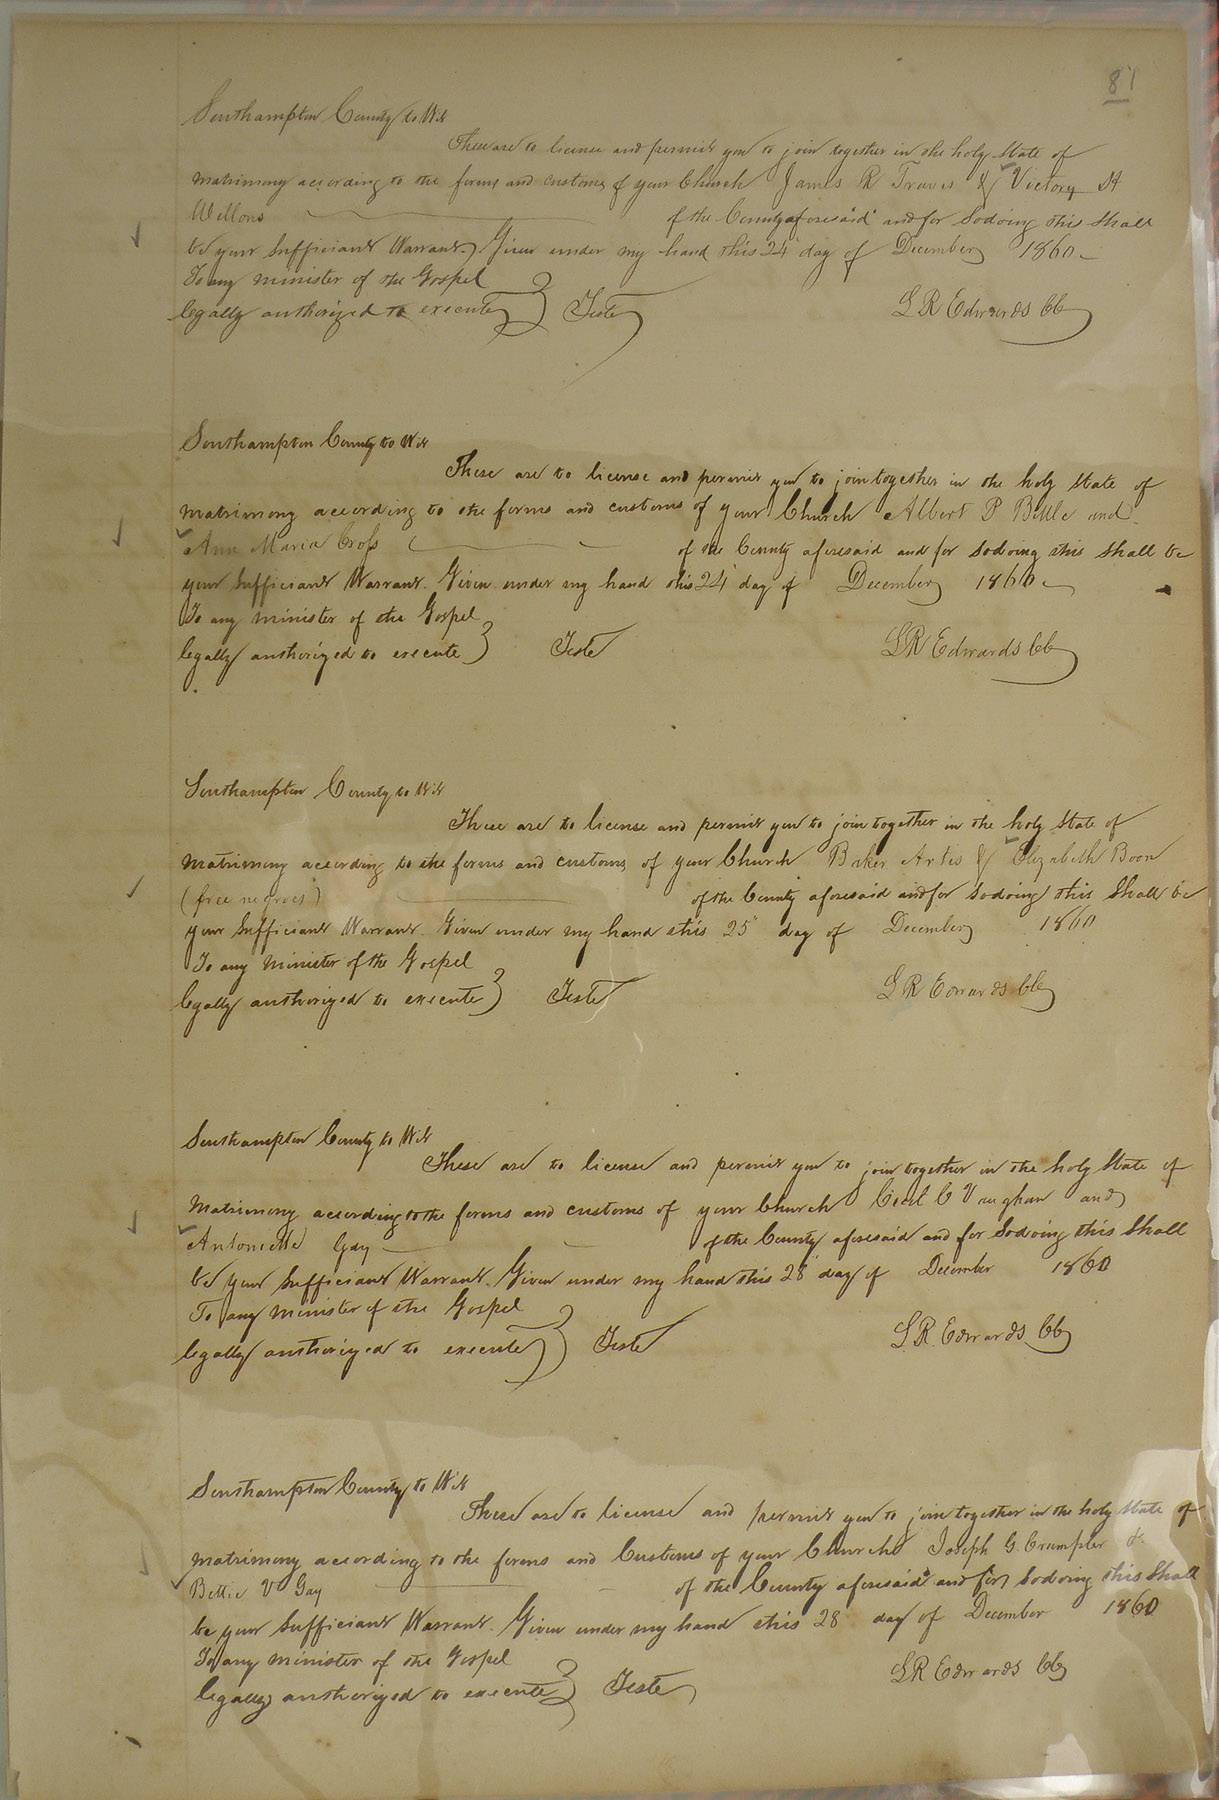 81
Southampton County to Wit
These are to license and permit you to join together in the holy State of
matrimony according to the forms and customs of your Church James R Travis & Victory A
Wellons of the County aforesaid and for Sodoing this Shall
be your Sufficiant Warrant. Given under my hand this 24 day of December 1860
To any minister of the Gospel
legally authorized to execute } Teste L R Edwards CC
Southampton County to Wit
These are to license and permit you to join together in the holy State of
matrimony according to the forms and customs of your Church Albert P Bittle and
Ann Maria Cross of the County aforesaid and for Sodoing this Shall be
your Sufficiant Warrant. Given under my hand this 24 day of December 1860
To any minister of the Gospel
legally authorized to execute } Teste L R Edwards CC
Southampton County to Wit
These are to license and permit you to join together in the holy State of
matrimony according to the forms and customs of your Church Baker Artis & Elizabeth Boon
(free negroes) of the County aforesaid and for Sodoing this Shall be
your Sufficiant Warrant. Given under my hand this 25 day of December 1860
To any minister of the Gospel
legally authorized to execute } Teste L R Edwards CC
Southampton County to Wit
These are to license and permit you to join together in the holy State of
Matrimony according to the forms and customs of your Church Cecil C Vaughan and
Antoniette Gay of the County aforesaid and for Sodoing this Shall
be your Sufficiant Warrant. Given under my hand this 28 day of December 1860
To any minister of the Gospel
legally authorized to execute } Teste L R Edwards CC
Southampton County to Wit
These are to license and permit you to join together in the holy State of
matrimony according to the forms and Customs of your Church Joseph G. Crumpler &
Bettie V Gay of the County aforesaid and for Sodoing this Shall
be your Sufficiant Warrant. Given under my hand this 28 day of December 1860
To any minister of the Gospel
legally authorized to execute } Teste L R Edwards CC